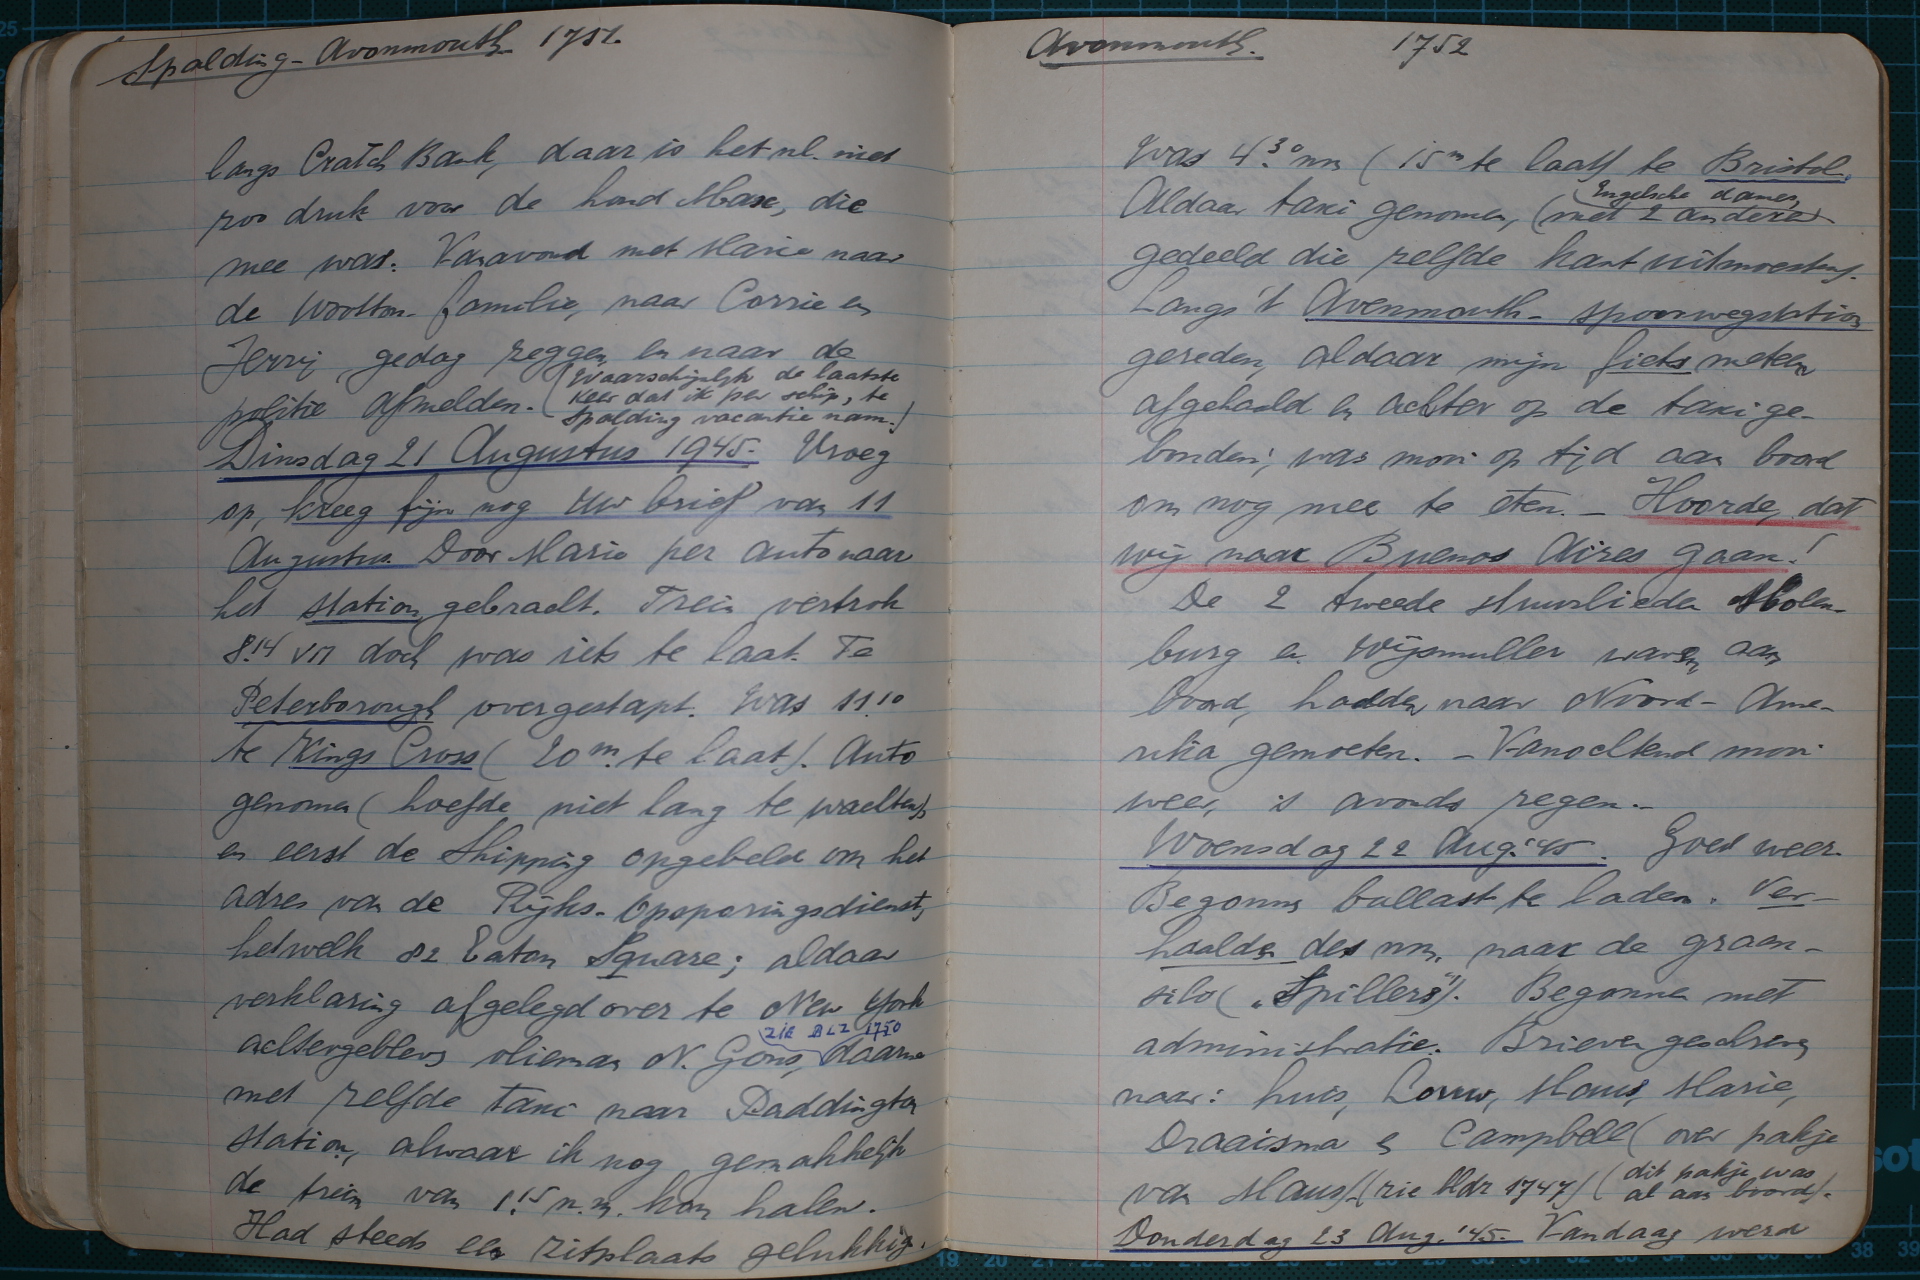 Spalding - Avonmouth 1751.
langs Cratch Bank, daar is het nl. niet
zoo druk voor de hond Max, die
mee was. Vanavond met Marie naar
de Wootton-familie, naar Corrie en
Jerrij, gedag zeggen en naar de
politie afmelden. (Waarschijnlijk de laatste
keer dat ik per schip, te
Spalding vacantie nam.)
Dinsdag 21 Augustus 1945. Vroeg
op, kreeg fijn nog Uw brief van 11
Augustus. Door Marie per auto naar
het station gebracht. Trein vertrok
8.14 vm doch was iets te laat. Te
Peterborough overgestapt. Was 11.10
te Kings Cross (20 m. te laat). Auto
genomen (hoefde niet lang te wachten),
en eerst de Shipping opgebeld om het
adres van de Rijks-Opsporingsdienst,
hetwelk 82 Eaton Square; aldaar
verklaring afgelegd over te New York
zie BLZ 1750
achtergebleven olieman N. Gons, daarna
met zelfde taxi naar Paddington
station, alwaar ik nog gemakkelijk
de trein van 1.15 n.m. kon halen.
Had steeds een zitplaats gelukkig.
Avonmouth. 1752
Was 4.30 nm (15 m te laat) te Bristol.
Engelsche dames
Aldaar taxi genomen, (met 2 andere
gedeeld die zelfde kant uitmoesten).
Langs 't Avonmouth-spoorwegstation
gereden, aldaar mijn fiets meteen
afgehaald en achter op de taxi ge-
bonden; was mooi op tijd aan boord
om nog mee te eten. - Hoorde, dat
wij naar Buenos Aires gaan!
De 2 tweede stuurlieden Molen-
burg en Wijsmuller waren aan
boord, hadden naar Noord-Ame-
rika gemoeten. - Vanochtend mooi
weer, 's avonds regen.-
Woensdag 22 Aug. '45. Goed weer.
Begonnen ballast te laden. Ver-
haalden des nm. naar de graan-
silo („Spillers"). Begonnen met
administratie. Brieven geschreven
naar: huis, Louw, Maus, Marie,
Draaisma & Campbell (over pakje
van Maus) (zie bldz 1747) (dit pakje was
al aan boord).
Donderdag 23 Aug. '45. Vandaag werd